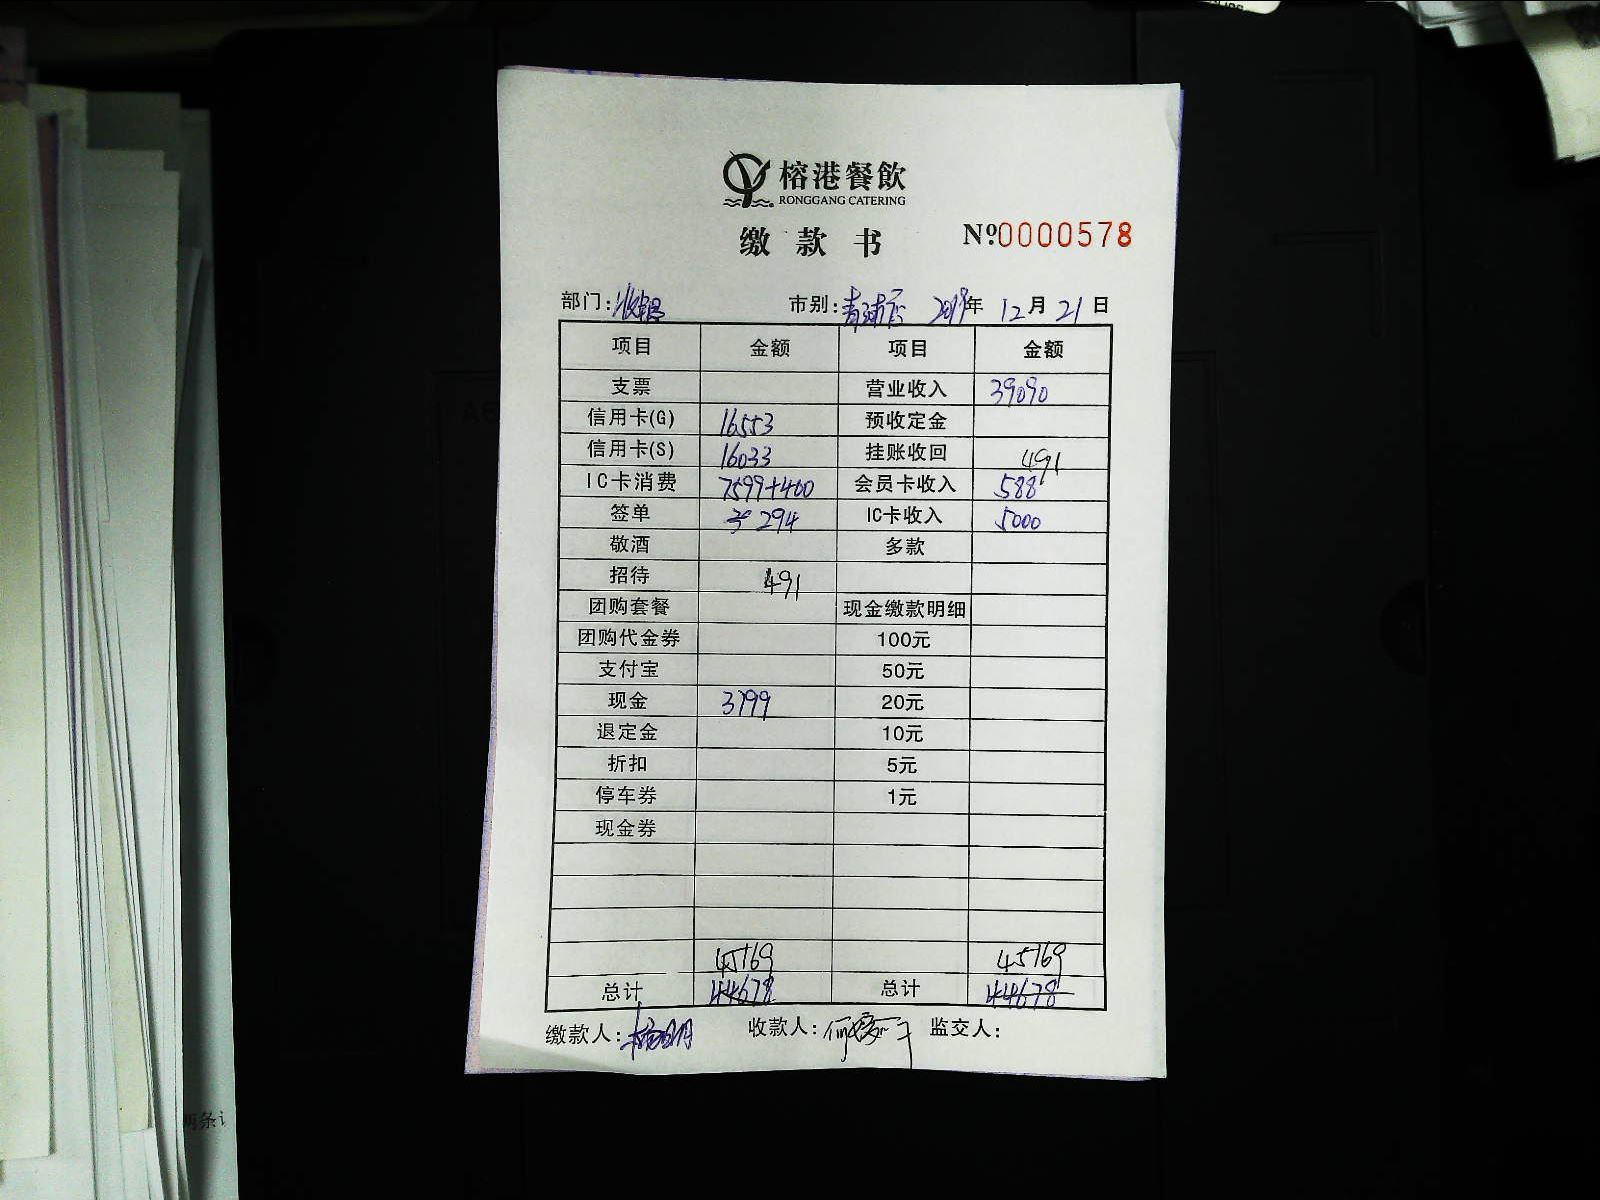 榕港餐飲
RONGGANG CATERING
缴款书 №0000578
部门:收银 市别:青浦店 2019年 12月 21日
项目 金额 项目 金额
支票 营业收入 39090
信用卡(G) 16553 预收定金
信用卡(S) 16033 挂账收回 491
IC卡消费 7599+400 会员卡收入 588
签单 294 IC卡收入 5000
敬酒 多款
招待 491
团购套餐 现金缴款明细
团购代金券 100元
支付宝 50元
现金 3799 20元
退定金 10元
折扣 5元
停车券 1元
现金券
45169 45169
总计 44678 总计 44678
缴款人: 收款人: 监交人:
两条